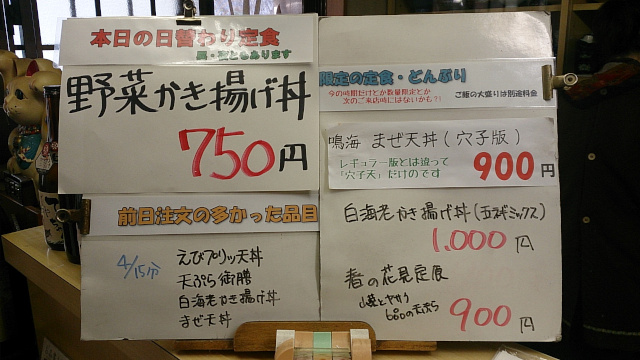 本日の日替わり定食
昼・夜ともあります
野菜かき揚げ丼
750円
前日注文の多かった品目
4/15分
えびプリッ天丼
天ぷら御膳
白海老かき揚げ丼
まぜ天丼
限定の定食・どんぶり
今の時期だけとか数量限定とか
次のご来店時にはないかも?!
ご飯の大盛りは別途料金
鳴海 まぜ天丼(穴子版)
レギュラー版とは違って
「穴子天」だけのです
900円
白海老かき揚げ丼(五えびミックス)
1.000円
春の花見定食
900円